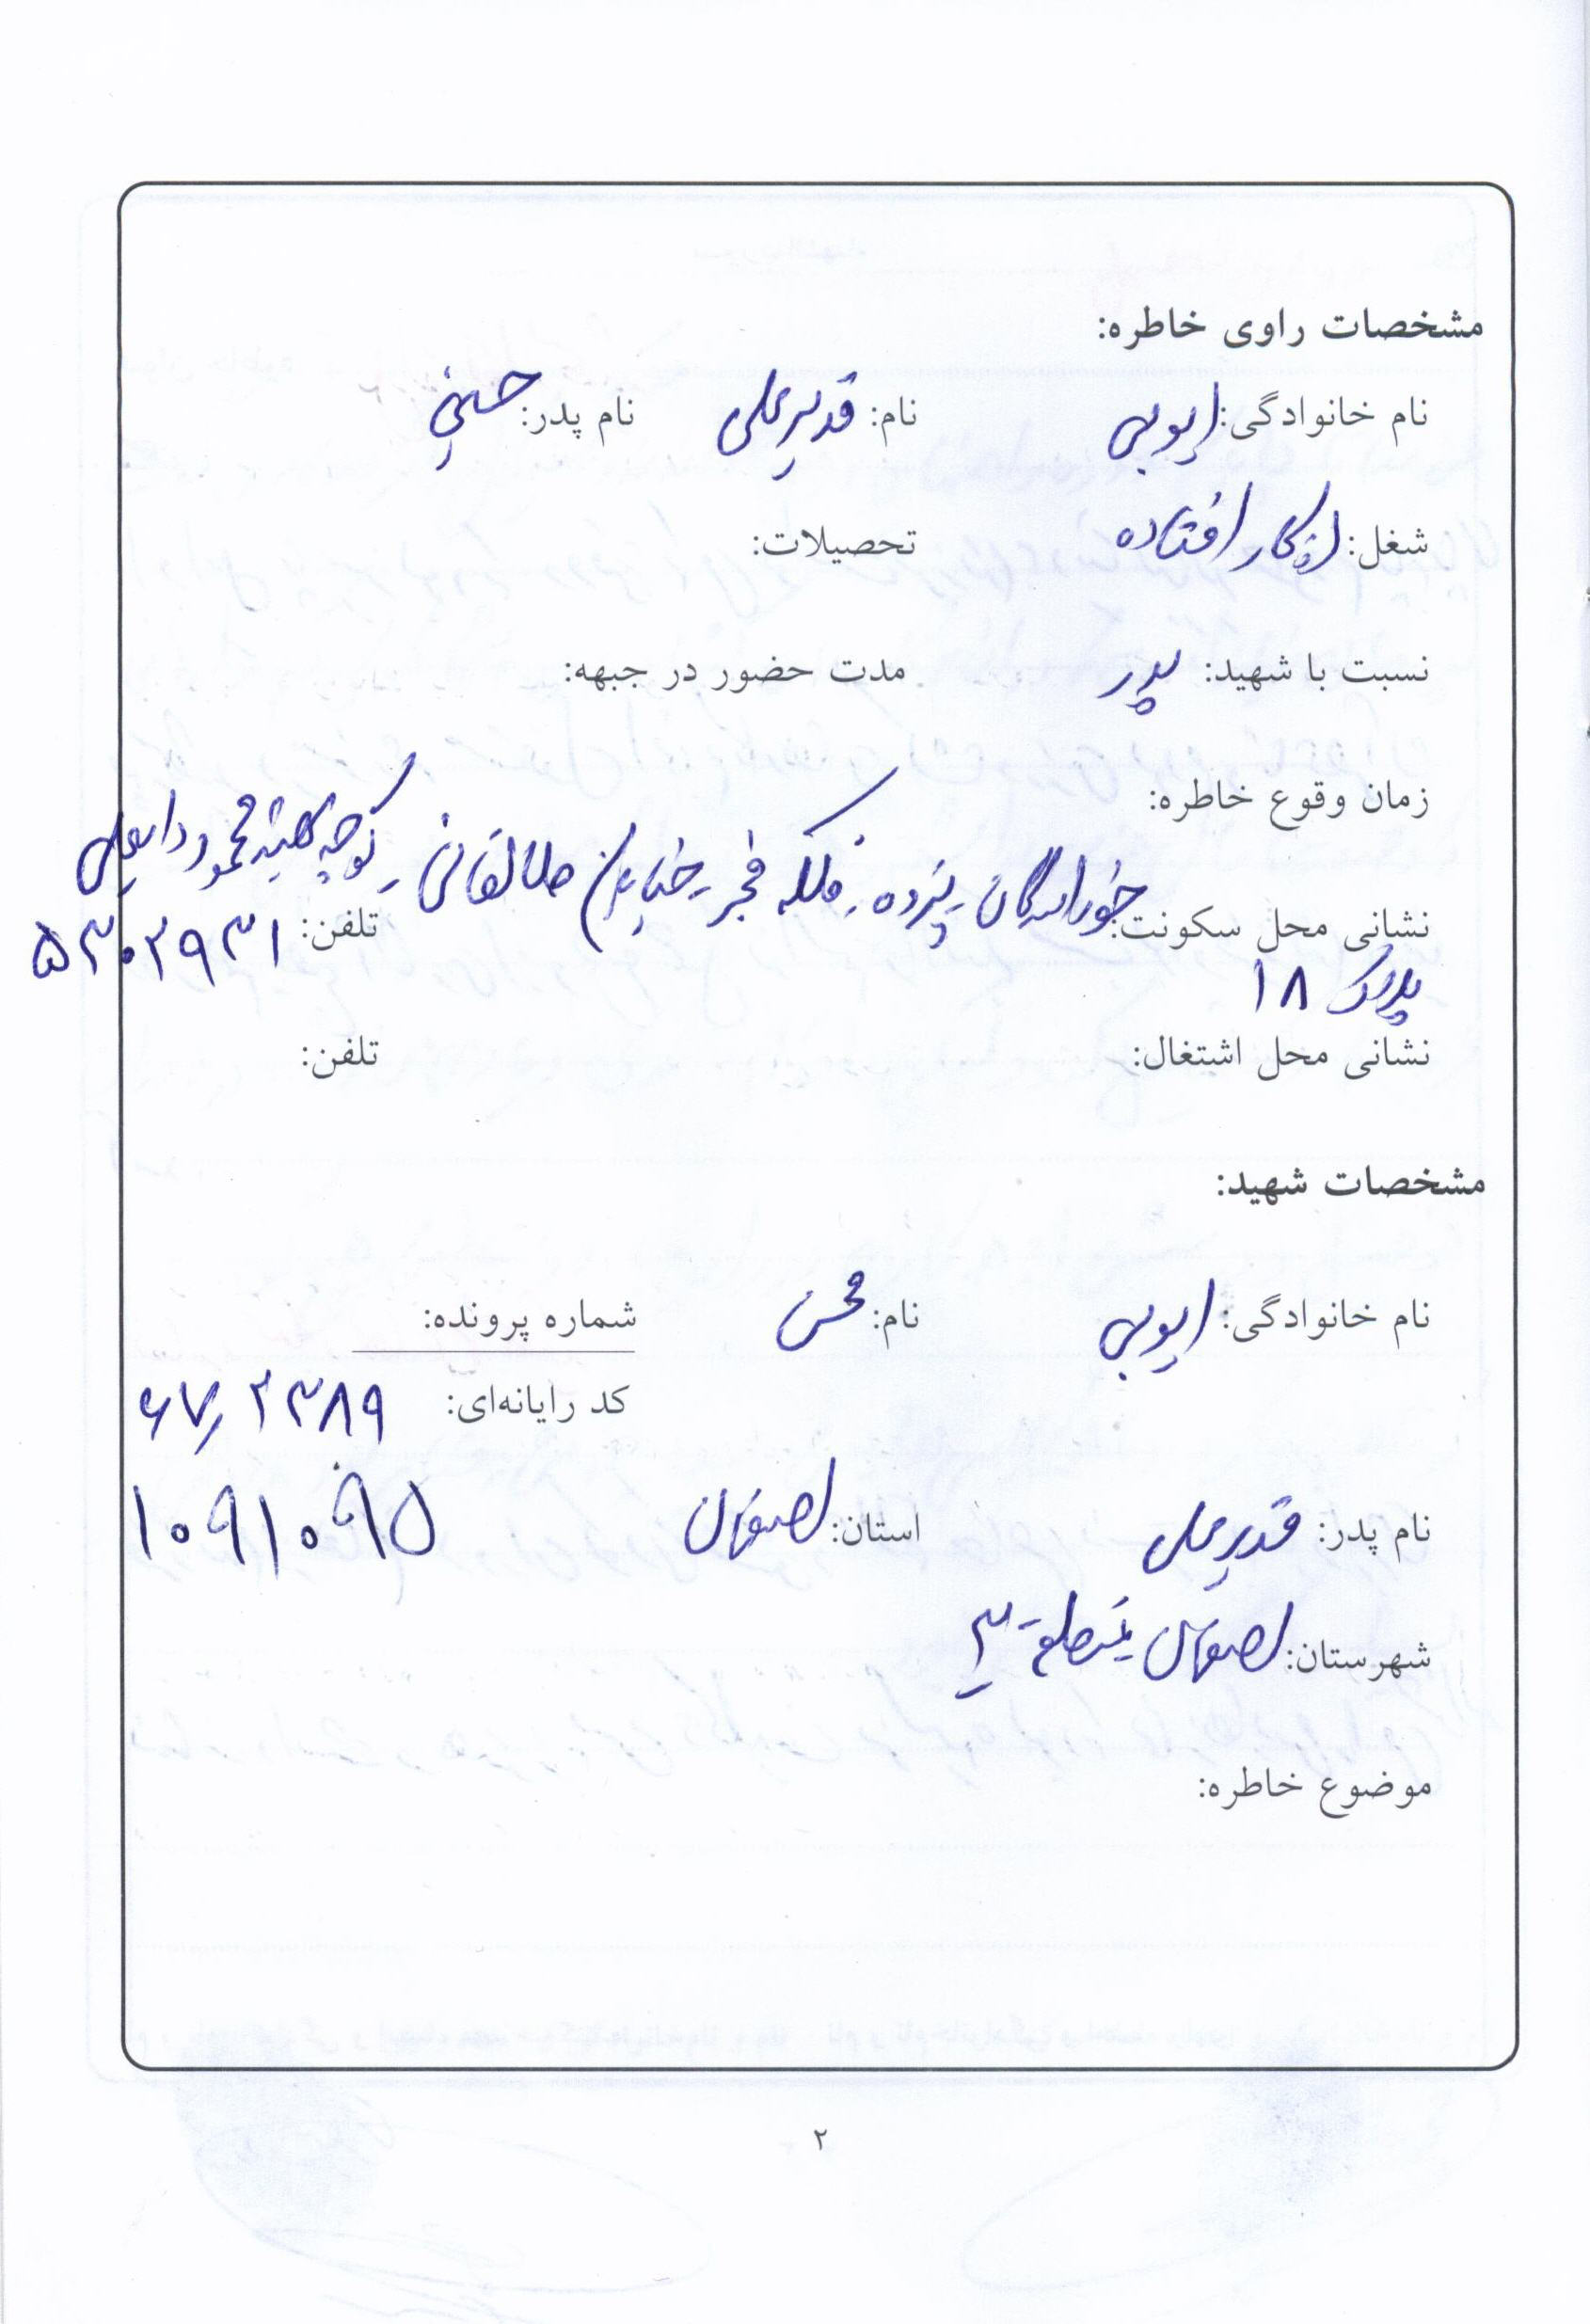 مشخصات راوی خاطره:
نام خانوادگی: ایوبی نام: قدیرعلی نام پدر: حسین
شغل: از کار افتاده تحصیلات:
نسبت با شهید: پدر مدت حضور در جبهه:
زمان وقوع خاطره:
نشانی محل سکونت: خوراسگان - پزوه - فلکه فجر - خیابان طالقانی - کوچه شهید محمود تلفن: ۵۳۰۲۹۳۱
پلاک ۱۸
نشانی محل اشتغال: تلفن:
مشخصات شهید:
نام خانوادگی: ایوبی نام: محسن شماره پرونده:
کد رایانه‌ای: ۶۷٫۲۳۸۹
نام پدر: قدیرعلی استان: اصفهان ۱۰۹۱۰۹۵
شهرستان: اصفهان منطقه ۳
موضوع خاطره:
۲